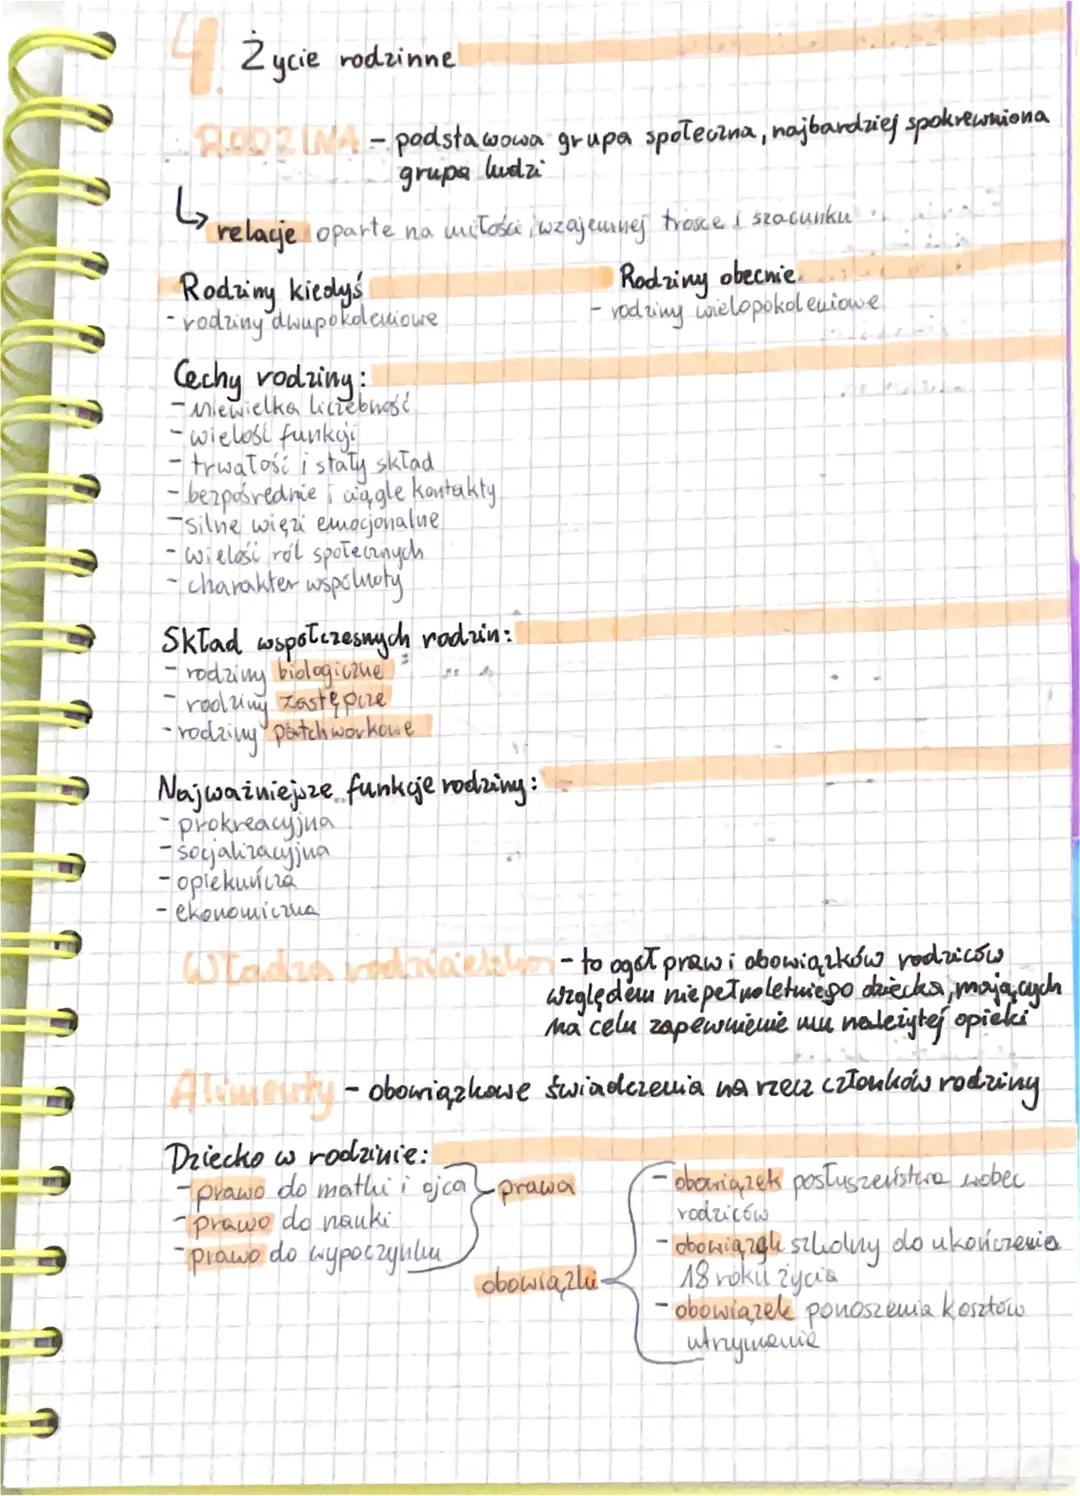 4. Życie rodzinne
RODZINA - podstawowa grupa społeczna, najbardziej spokrewniona
grupa ludzi
↳ relacje oparte na miłości, wzajemnej trosce i szacunku
Rodziny kiedyś
- rodziny dwupokoleniowe
Rodziny obecnie
- rodziny wielopokoleniowe
Cechy rodziny:
- niewielka liczebność
- wielość funkcji
- trwałość i stały skład
- bezpośrednie i ciągłe kontakty
- silne więzi emocjonalne
- wielość ról społecznych
- charakter wspólnoty
Skład współczesnych rodzin:
- rodziny biologiczne
- rodziny zastępcze
- rodziny patchworkowe
Najważniejsze funkcje rodziny:
- prokreacyjna
- socjalizacyjna
- opiekuńcza
- ekonomiczna
Władza rodzicielska - to ogół praw i obowiązków rodziców
względem niepełnoletniego dziecka, mających
na celu zapewnienie mu należytej opieki
Alimenty - obowiązkowe świadczenia na rzecz członków rodziny
Dziecko w rodzinie:
- prawo do matki i ojca
- prawo do nauki
- prawo do wypoczynku
prawa
obowiązki
- obowiązek posłuszeństwa wobec
rodziców
- obowiązek szkolny do ukończenia
18 roku życia
- obowiązek ponoszenia kosztów
utrzymania